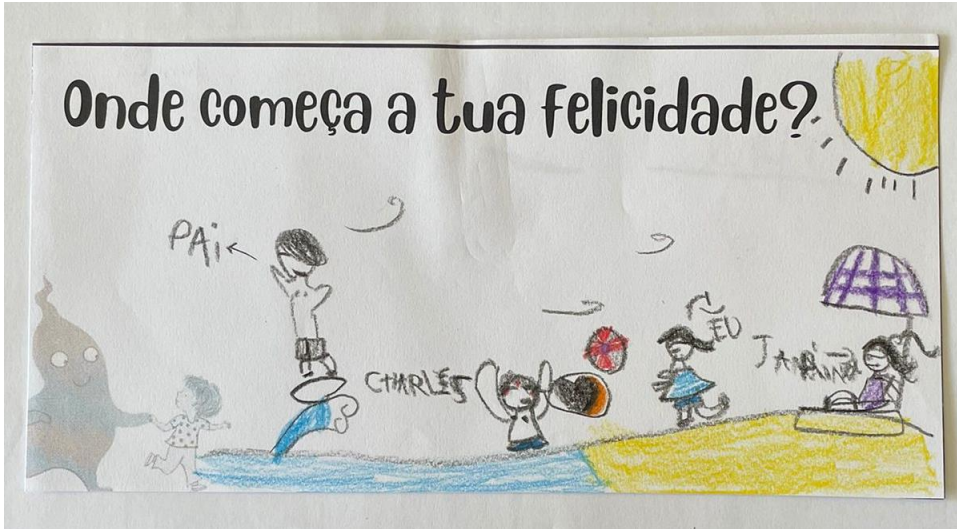 Onde começa a tua felicidade?
PAi
CHARLES
EU
JANAINA